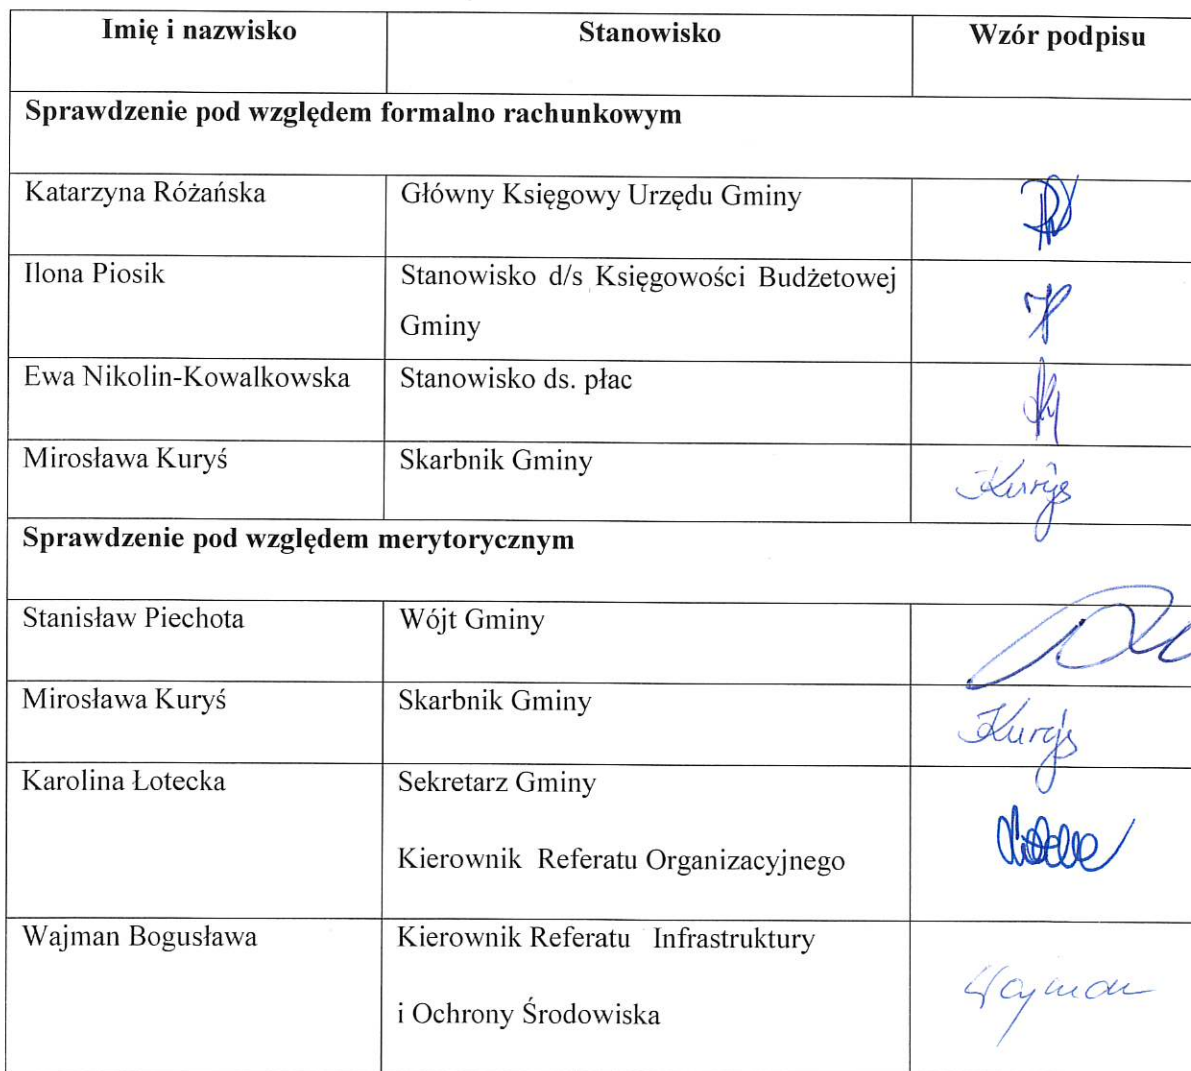 Imię i nazwisko Stanowisko Wzór podpisu
Sprawdzenie pod względem formalno rachunkowym
Katarzyna Różańska Główny Księgowy Urzędu Gminy
Ilona Piosik Stanowisko d/s Księgowości Budżetowej
Gminy
Ewa Nikolin-Kowalkowska Stanowisko ds. płac
Mirosława Kuryś Skarbnik Gminy Kuryś
Sprawdzenie pod względem merytorycznym
Stanisław Piechota Wójt Gminy
Mirosława Kuryś Skarbnik Gminy Kuryś
Karolina Łotecka Sekretarz Gminy
Kierownik Referatu Organizacyjnego
Wajman Bogusława Kierownik Referatu Infrastruktury
Wajman
i Ochrony Środowiska